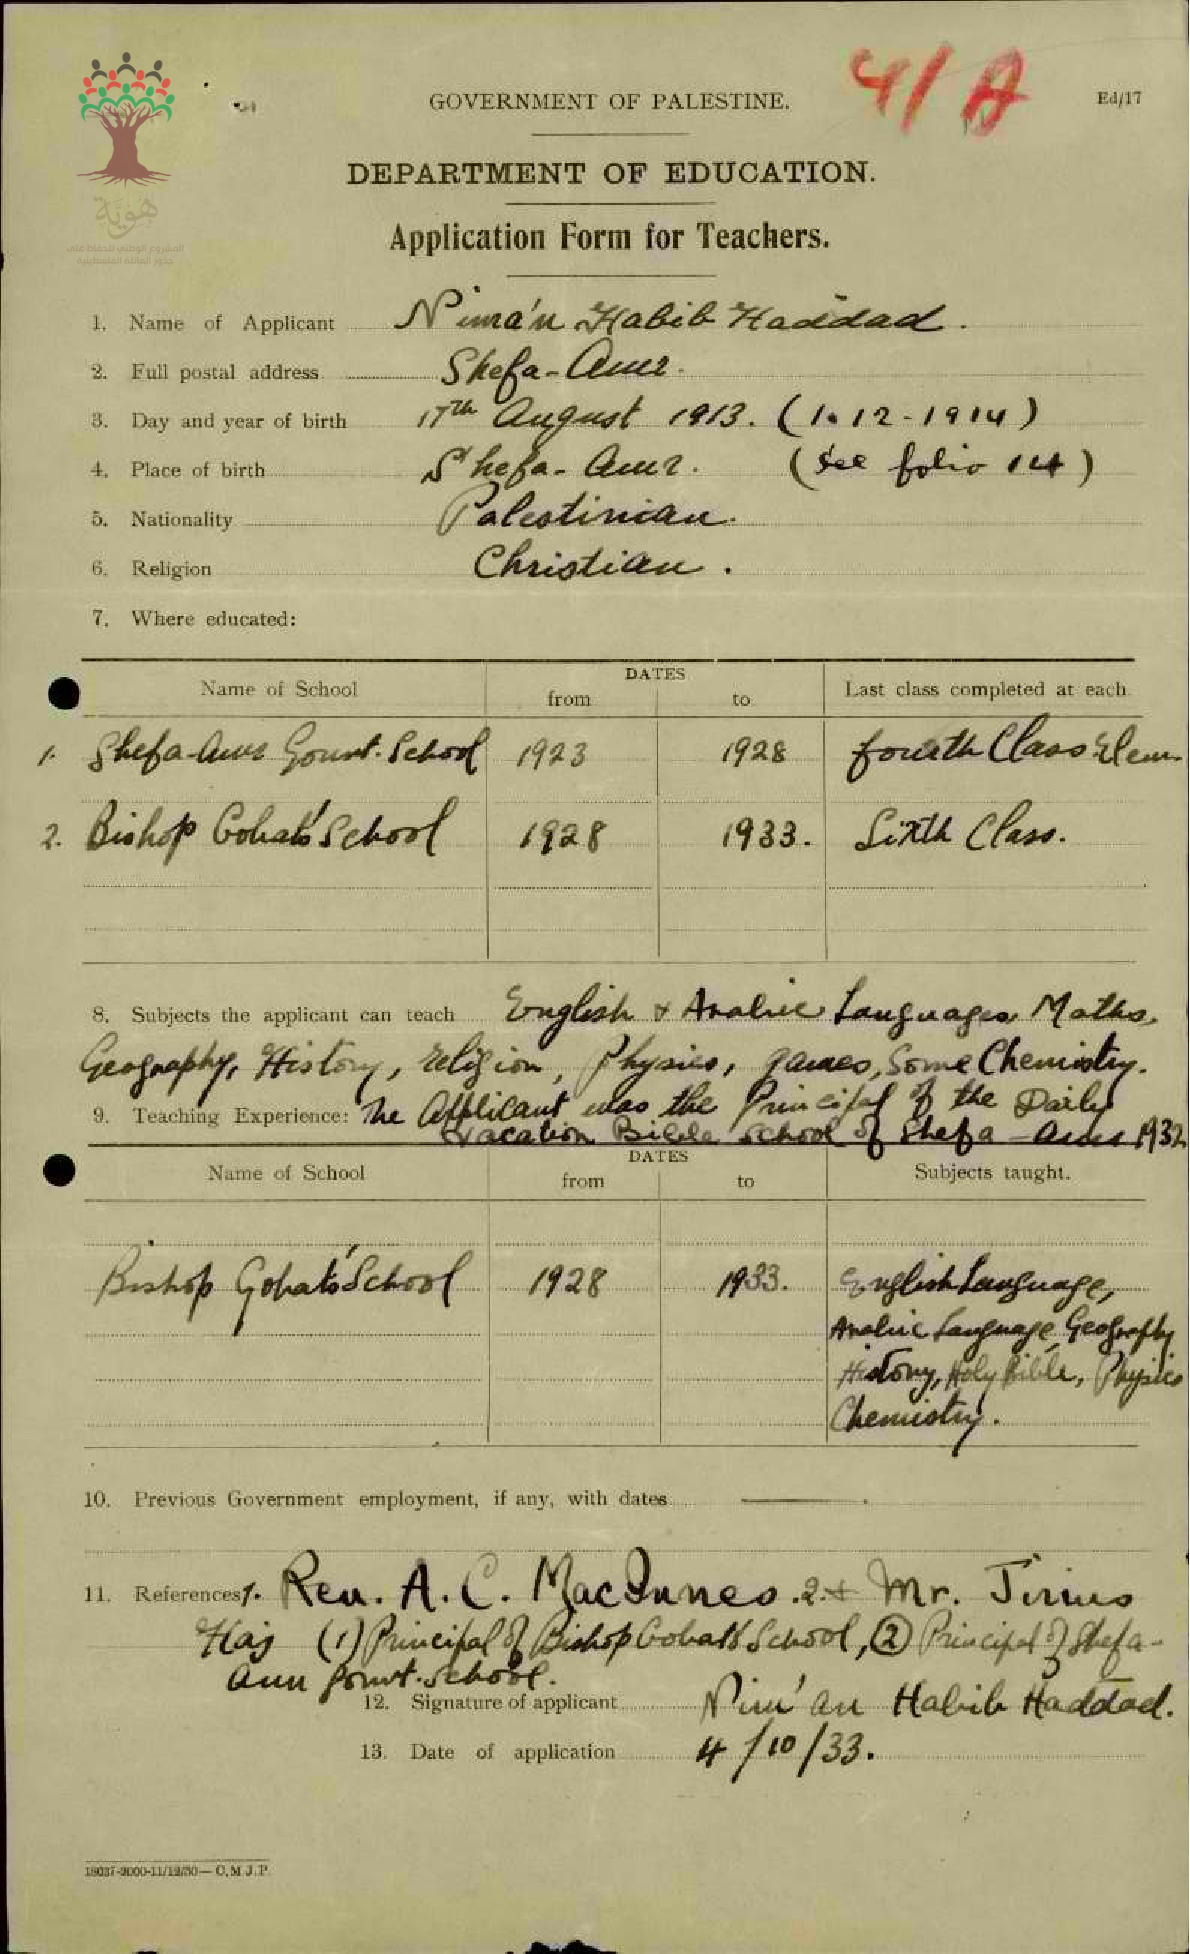 41 A
GOVERNMENT OF PALESTINE.
Ed/17
DEPARTMENT OF EDUCATION.
هوية
المشروع الوطني للحفاظ على
جذور العائلة الفلسطينية
Application Form for Teachers.
1. Name of Applicant Nima'n Habib Haddad.
2. Full postal address Shefa-Amr.
3. Day and year of birth 17th August 1913. (1.12-1914)
4. Place of birth Shefa-Amr. (See folio 14)
5. Nationality Palestinian.
6. Religion Christian.
7. Where educated:
Name of School DATES from to Last class completed at each.
1. Shefa-Amr Govnt. School 1923 1928 fourth Class Elem.
2. Bishop Gobat's School 1928 1933. Sixth Class.
8. Subjects the applicant can teach English & Arabic Languages, Maths,
Geography, History, religion, Physics, games, Some Chemistry.
9. Teaching Experience: The Applicant was the Principal of the Daily
Vacation Bible School of Shefa-Amr 1932
Name of School DATES from to Subjects taught.
Bishop Gobat's School 1928 1933. English Language,
Arabic Language, Geography
History, Holy Bible, Physics
Chemistry.
10. Previous Government employment, if any, with dates —
11. References 1. Rev. A. C. MacInnes. 2. & Mr. Jirius
Haj (1) Principal of Bishop Gobat's School, (2) Principal of Shefa-
Amr Govnt. School.
12. Signature of applicant Nim'an Habib Haddad.
13. Date of application 4/10/33.
18037-2000-11/12/30— C.M.J.P.